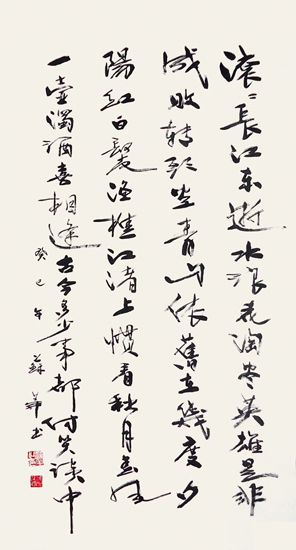 滚〻長江东逝水浪花淘尽英雄是非
成败转头空青山依舊在幾度夕
陽红白髮渔樵江渚上惯看秋月春风
一壶濁酒喜相逢古今多少事都付笑谈中
癸巳年蘇華书